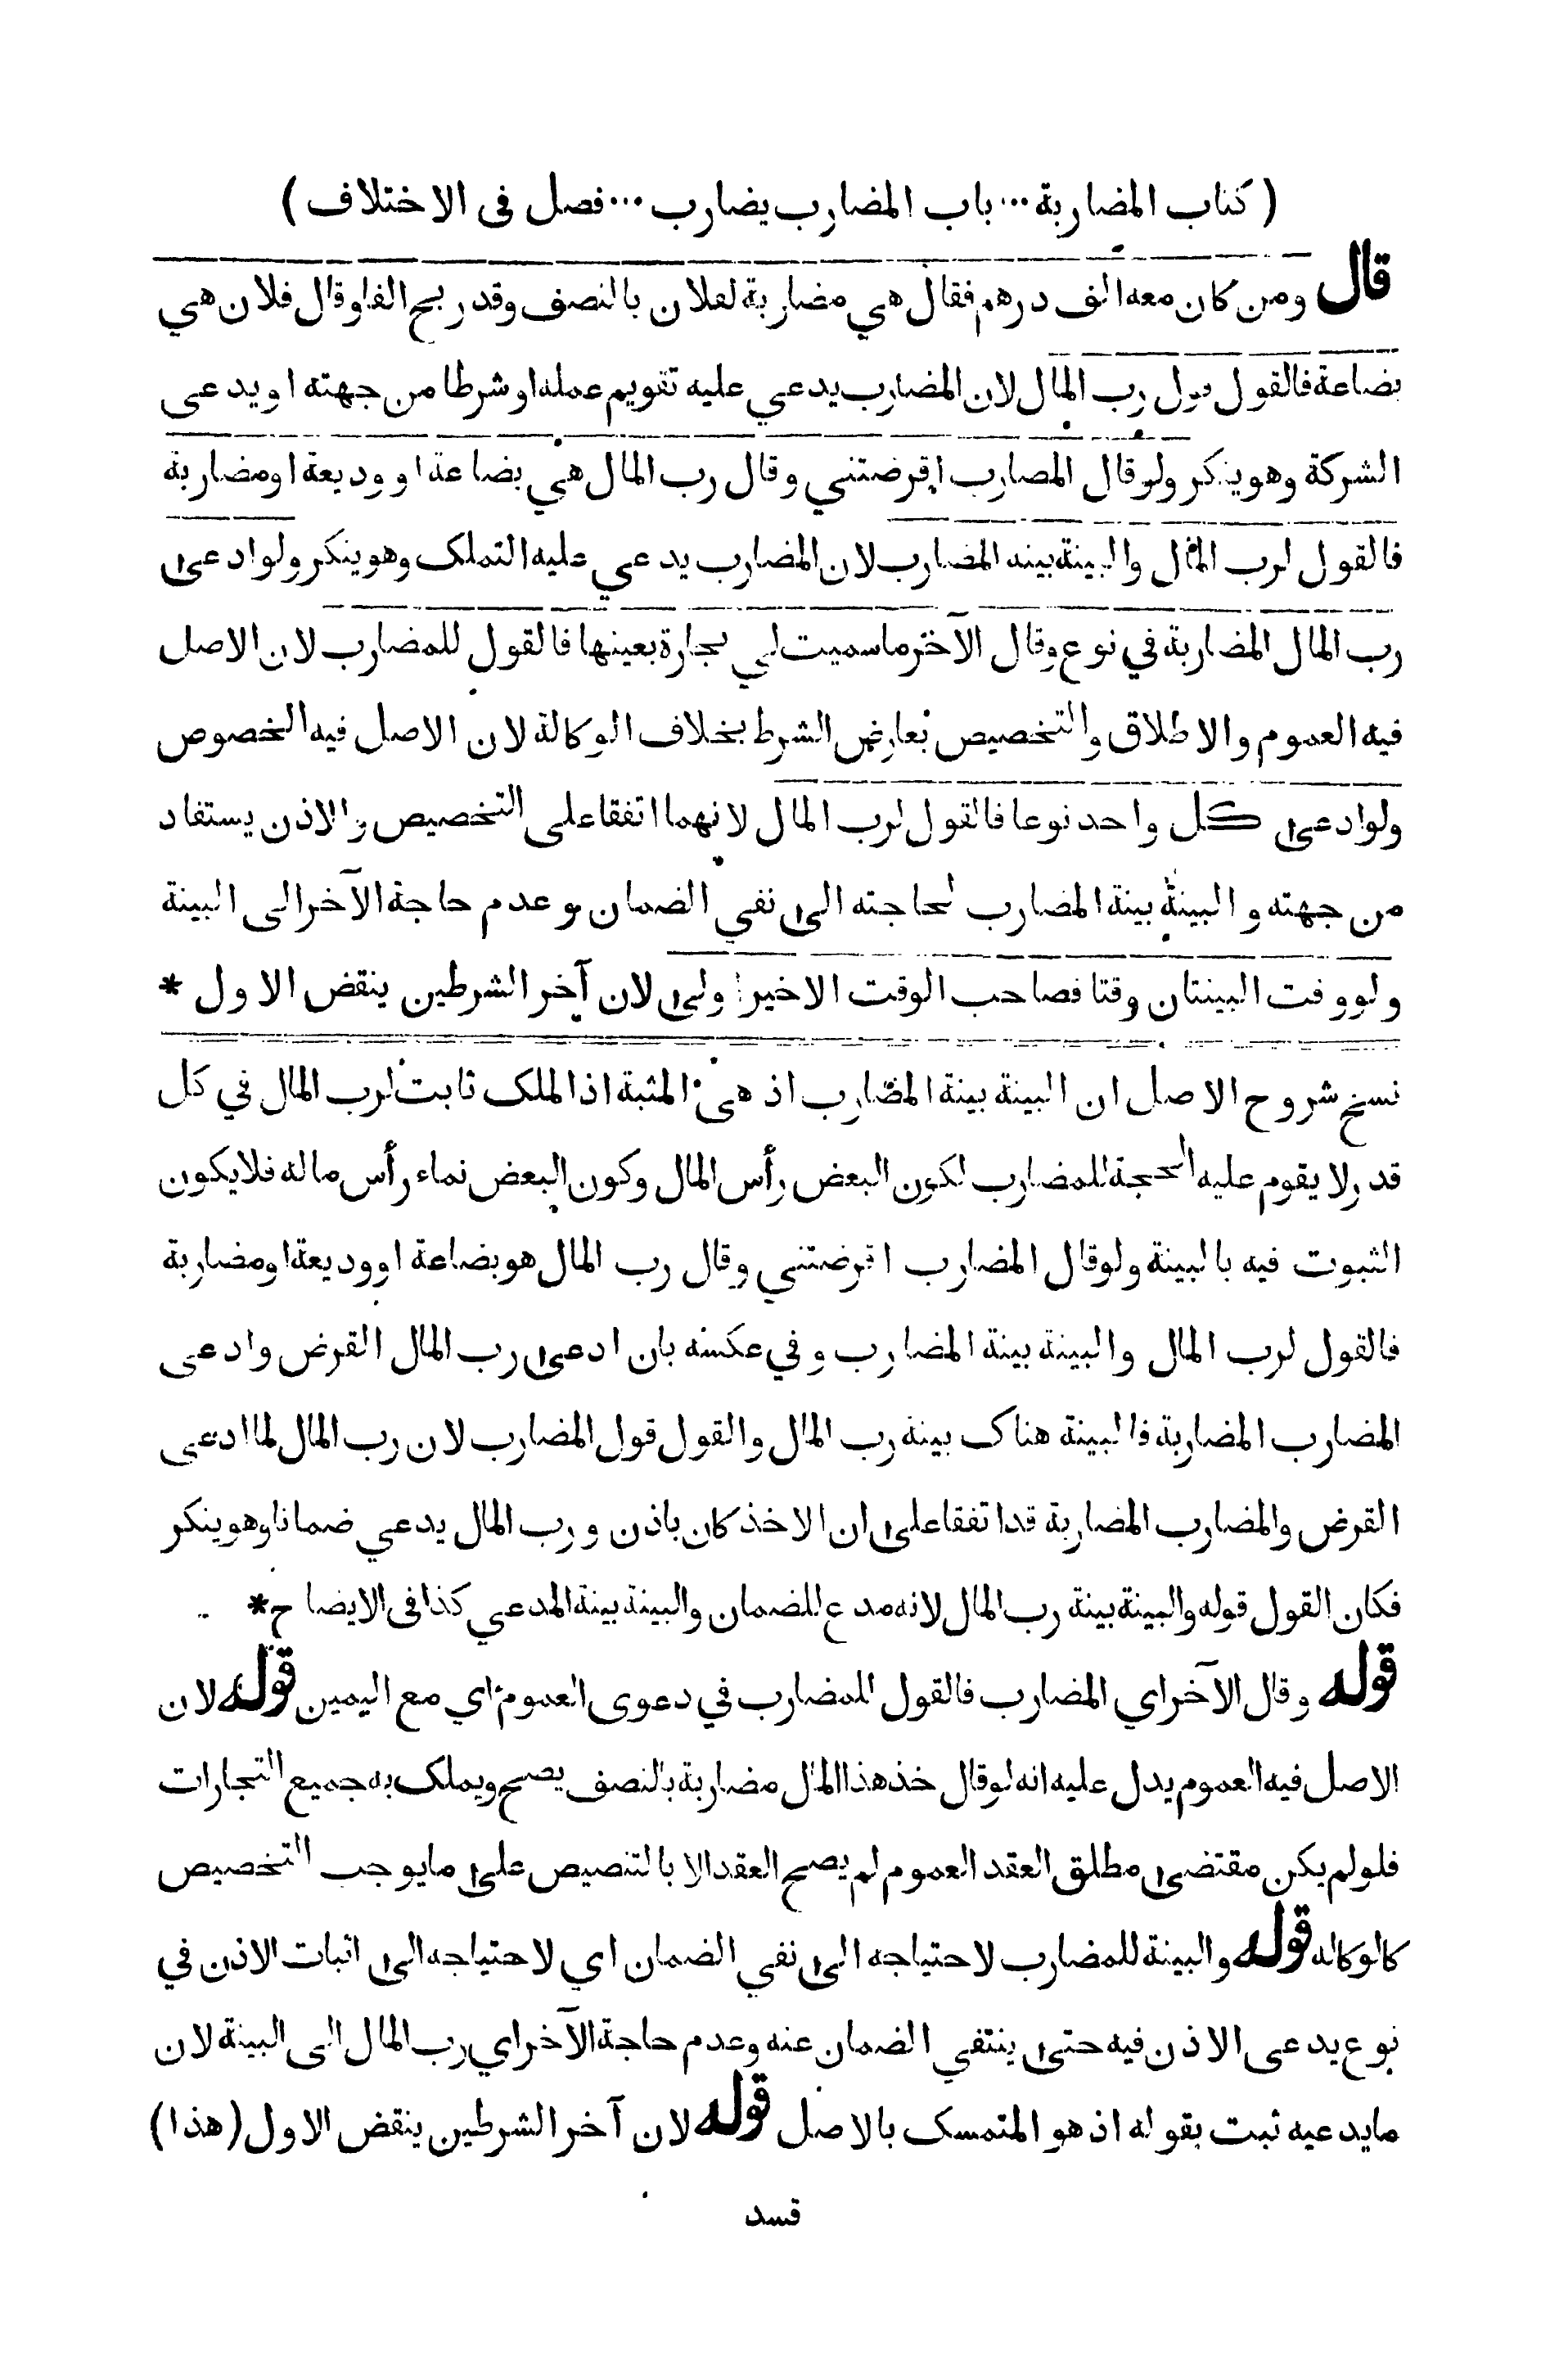 ( كتاب المضاربة ••• باب المضارب يضارب ••• فصل فى الاختلاف )
قال ومن كان معه الف درهم فقال هي مضاربة لفلان بالنصف وقد ربح الفا وقال فلان هي
بضاعة فالقول قول رب المال لان المضارب يدعي عليه تقويم عمله او شرطا من جهته او يدعى
الشركة وهو ينكر ولو قال المضارب اقرضتني وقال رب المال هي بضاعة او وديعة او مضاربة
فالقول لرب المال والبينة بينة المضارب لان المضارب يدعي عليه التملك وهو ينكر ولو ادعى
رب المال المضاربة في نوع وقال الآخر ما سميت لي تجارة بعينها فالقول للمضارب لان الاصل
فيه العموم والاطلاق والتخصيص بعارض الشرط بخلاف الوكالة لان الاصل فيه الخصوص
ولو ادعى كل واحد نوعا فالقول لرب المال لانهما اتفقا على التخصيص والاذن يستفاد
من جهته والبينة بينة المضارب لحاجته الى نفي الضمان وعدم حاجة الآخر الى البينة
ولو وقت البينتان وقتا فصاحب الوقت الاخير اولى لان آخر الشرطين ينقض الاول *
نسخ شروح الاصل ان البينة بينة المضارب اذ هى المثبة اذ الملك ثابت لرب المال في كل
قدر لا يقوم عليه الحجة للمضارب لكون البعض رأس المال وكون البعض نماء رأس ماله فلا يكون
الثبوت فيه بالبينة ولو قال المضارب اقرضتني وقال رب المال هو بضاعة او وديعة او مضاربة
فالقول لرب المال والبينة بينة المضارب وفي عكسه بان ادعى رب المال القرض وادعى
المضارب المضاربة فالبينة هناك بينة رب المال والقول قول المضارب لان رب المال لما ادعى
القرض والمضارب المضاربة قد اتفقا على ان الاخذ كان باذن ورب المال يدعي ضمانا وهو ينكر
فكان القول قوله والبينة بينة رب المال لانه مدع للضمان والبينة بينة المدعي كذا فى الايضاح *
قوله وقال الآخر اي المضارب فالقول للمضارب في دعوى العموم اي مع اليمين قوله لان
الاصل فيه العموم يدل عليه انه لو قال خذ هذا المال مضاربة بالنصف يصح ويملك به جميع التجارات
فلو لم يكن مقتضى مطلق العقد العموم لم يصح العقد الا بالتنصيص على ما يوجب التخصيص
كالوكاله قوله والبينة للمضارب لاحتياجه الى نفي الضمان اي لاحتياجه الى اثبات الاذن في
نوع يدعى الاذن فيه حتى ينتفي الضمان عنه وعدم حاجة الآخر اي رب المال الى البينة لان
ما يدعيه ثبت بقوله اذ هو المتمسك بالاصل قوله لان آخر الشرطين ينقض الاول ( هذا )